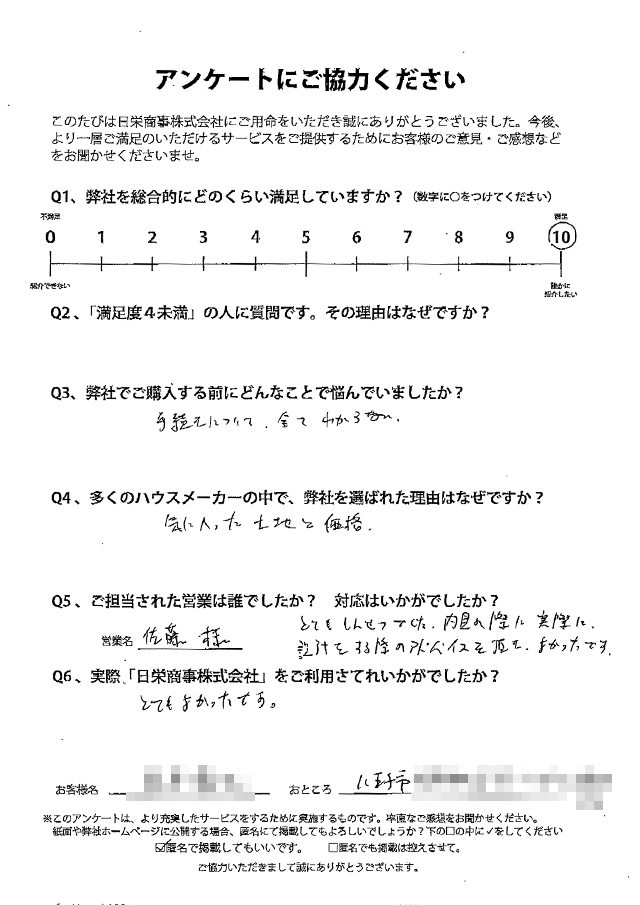 アンケートにご協力ください
このたびは日栄商事株式会社にご用命をいただき誠にありがとうございました。今後、
より一層ご満足のいただけるサービスをご提供するためにお客様のご意見・ご感想など
をお聞かせくださいませ。
Q1、弊社を総合的にどのくらい満足していますか？（数字に○をつけてください）
不満足 満足
0 1 2 3 4 5 6 7 8 9 10
紹介できない 誰かに
紹介したい
Q2、「満足度４未満」の人に質問です。その理由はなぜですか？
Q3、弊社でご購入する前にどんなことで悩んでいましたか？
手続きについて、全てわからない、
Q4、多くのハウスメーカーの中で、弊社を選ばれた理由はなぜですか？
気に入った土地と価格.
Q5、ご担当された営業は誰でしたか？ 対応はいかがでしたか？
とてもしんせつでした、内見の際に実際に、
営業名 佐藤 様
設計をする際のアドバイスを頂き、よかったです、
Q6、実際「日栄商事株式会社」をご利用さてれいかがでしたか？
とてもよかったです。
お客様名 おところ 八王子市
※このアンケートは、より充実したサービスをするために実施するものです。率直なご感想をお聞かせください。
紙面や弊社ホームページに公開する場合、匿名にて掲載してもよろしいでしょうか？下の□の中に✓をしてください
☑匿名で掲載してもいいです。 □匿名でも掲載は控えさせて。
ご協力いただきまして誠にありがとうございます。